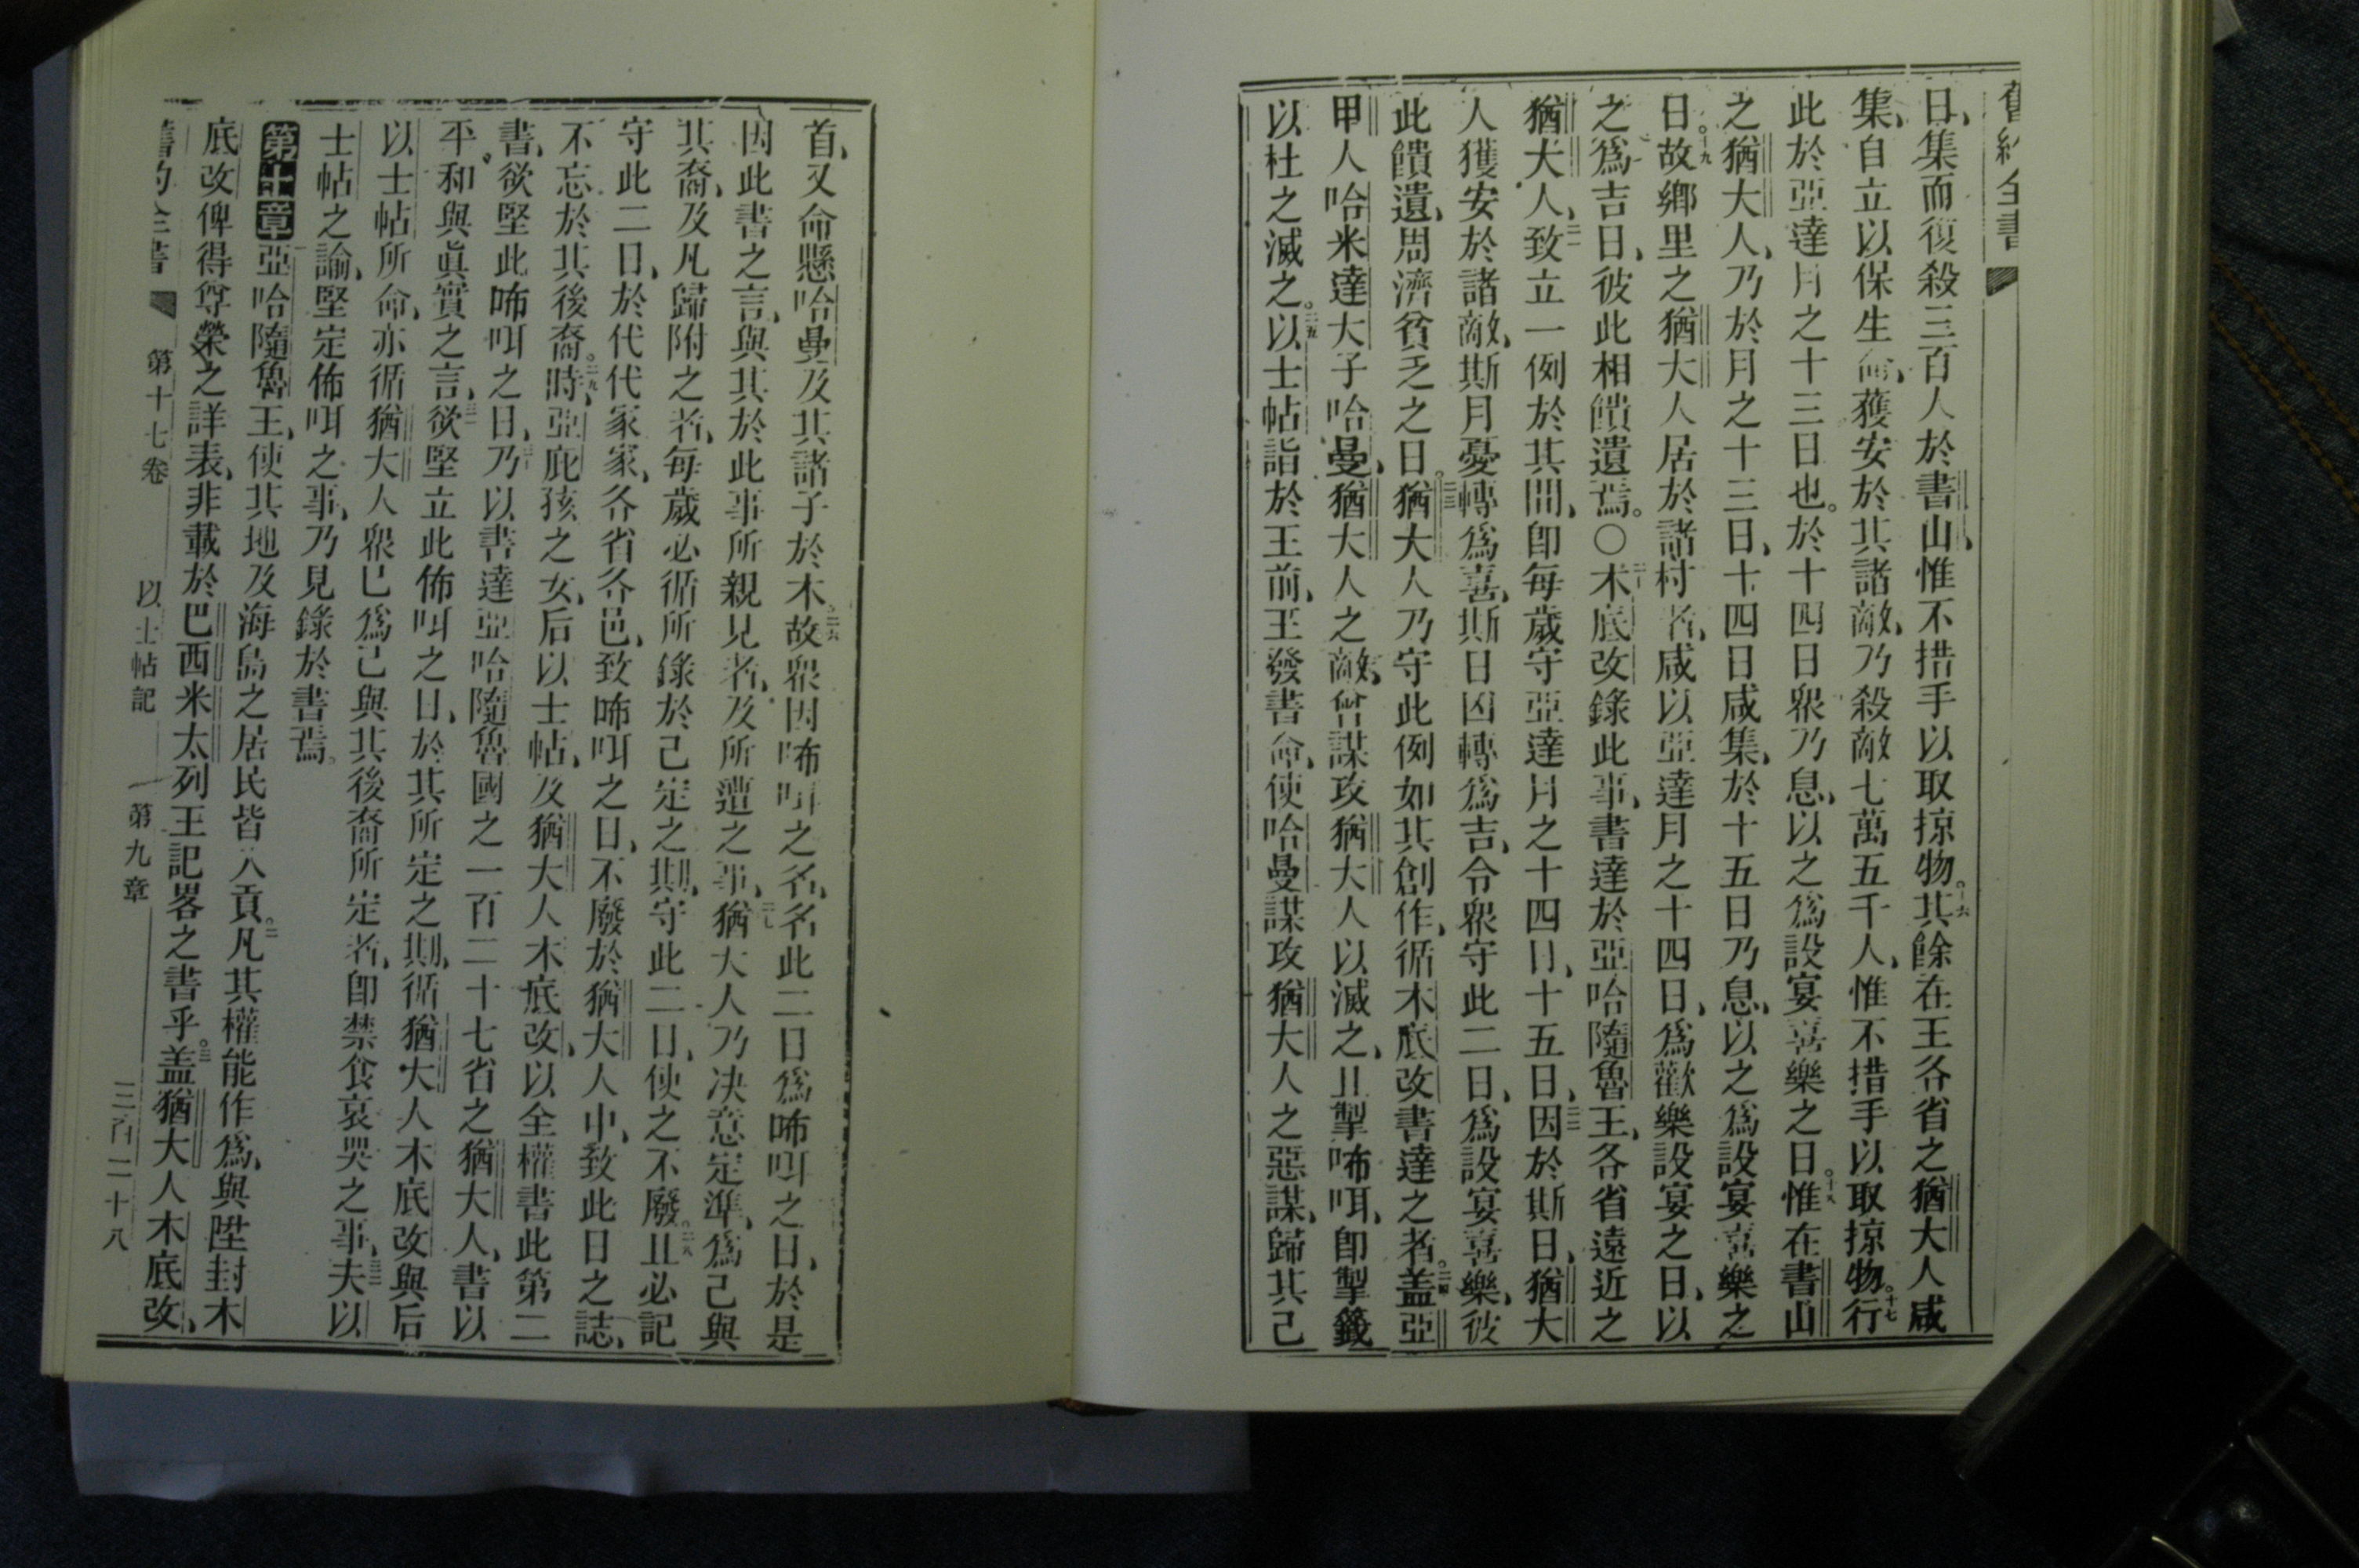 舊約全書
日、集而復殺三百人於書山、惟不措手以取掠物。十六其餘在王各省之猶大人咸
集、自立以保生命、獲安於其諸敵、乃殺敵七萬五千人、惟不措手以取掠物。十七行
此於亞達月之十三日也。於十四日衆乃息、以之爲設宴喜樂之日。十八惟在書山
之猶大人、乃於月之十三日、十四日咸集、於十五日乃息、以之爲設宴喜樂之
日。十九故鄉里之猶大人居於諸村者、咸以亞達月之十四日、爲歡樂設宴之日、以
之爲吉日、彼此相饋遺焉。〇二十木底改錄此事、書達於亞哈隨魯王、各省遠近之
猶大人、二一致立一例於其間、卽每歲守亞達月之十四日、十五日、二二因於斯日、猶大
人獲安於諸敵、斯月憂轉爲喜、斯日凶轉爲吉、令衆守此二日、爲設宴喜樂、彼
此饋遺、周濟貧乏之日。二三猶大人乃守此例如其創作、循木底改書達之者。二四盖亞
甲人哈米達大子哈曼、猶大人之敵、曾謀攻猶大人以滅之、且掣咘咡、卽掣籤
以杜之滅之。二五以士帖詣於王前、王發書命、使哈曼謀攻猶大人之惡謀、歸其己
首、又命懸哈曼及其諸子於木。二六故衆因咘咡之名、名此二日爲咘咡之日、於是
因此書之言、與其於此事所親見者、及所遭之事、二七猶大人乃决意定準、爲己與
其裔、及凡歸附之者、每歲必循所錄於己定之期、守此二日、使之不廢。二八且必記
守此二日、於代代家家、各省各邑、致咘咡之日、不廢於猶大人中、致此日之誌、
不忘於其後裔。二九時、亞庇孩之女、后以士帖、及猶大人木底改、以全權書此第二
書、欲堅此咘咡之日、三十乃以書達亞哈隨魯國之一百二十七省之猶大人、書以
平和與眞實之言、三一欲堅立此佈咡之日、於其所定之期、循猶大人木底改與后
以士帖所命、亦循猶大人衆已爲己與其後裔所定者、卽禁食哀哭之事、三二夫以
士帖之諭、堅定佈咡之事、乃見錄於書焉。
第十章 亞哈隨魯王、使其地及海島之居民皆入貢。二凡其權能作爲、與陞封木
底改俾得尊榮之詳表、非載於巴西米太列王記畧之書乎。三盖猶大人木底改、
舊約全書 第十七卷 以士帖記 第九章 三百二十八